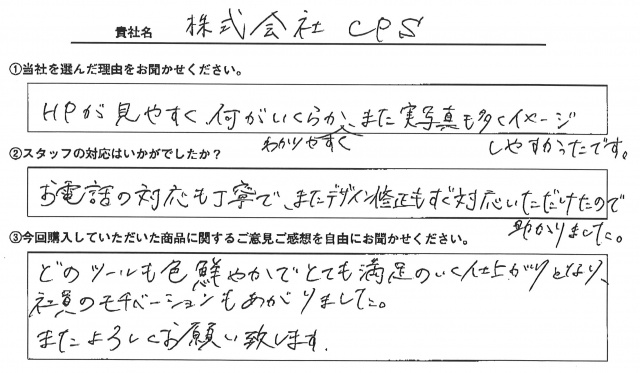 貴社名 株式会社 CPS
①当社を選んだ理由をお聞かせください。
HPが見やすく、何がいくらか、わかりやすく また実写真も多くイメージ
しやすかったです。
②スタッフの対応はいかがでしたか？
お電話の対応も丁寧で、またデザイン修正もすぐ対応いただけたので
助かりました。
③今回購入していただいた商品に関するご意見ご感想を自由にお聞かせください。
どのツールも色鮮やかでとても満足のいく仕上がりとなり、
社員のモチベーションもあがりました。
またよろしくお願い致します.